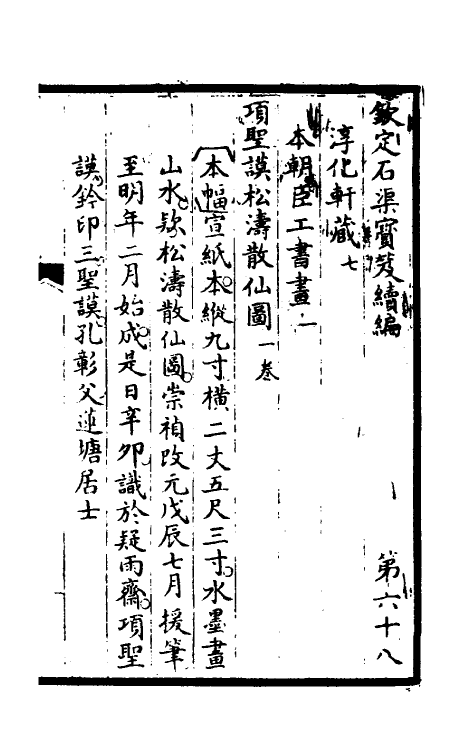 欽定石渠寶笈續編 第六十八
淳化軒藏七
本朝臣工書畫一
項聖謨松濤散仙圖一卷
本幅宣紙本縱九寸橫二丈五尺三寸水墨畫
山水款松濤散仙圖崇禎改元戊辰七月援筆
至明年二月始成是日辛卯識於疑雨齋項聖
謨鈐印三聖謨孔彰父蓮塘居士